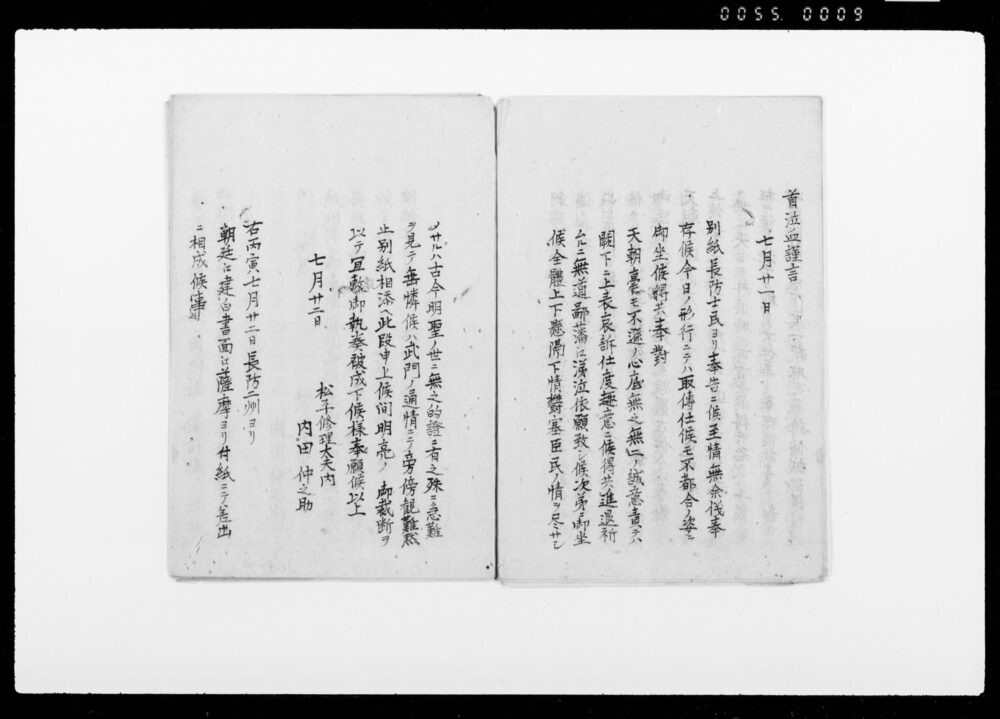 0055. 0009
首泣血謹言
七月廿一日
別紙長防士民ヨリ奉告ニ候至情無余儀奉
存候今日ノ形行ニテハ取傳仕候モ不都合ノ姿ニ
御坐候得共奉對
天朝毫モ不遜ノ心底無之無二ノ誠意責テハ
闕下ニ上表哀訴仕度趣意ニ候得共進退祈
ムルニ無道鄙藩江涕泣依願致シ候次第ニ御坐
候全體上下懸隔下情欝塞臣民ノ情ヲ尽サシ
メサルハ古今明聖ノ世ニ無之的證ニ有之殊ニ急難
ヲ見テ無憐候ハ武門ノ通情ニテ旁傍観難黙
止別紙相添ヘ此段申上候間明亮ノ御裁断ヲ
以テ宜敷御執奏被成下候様奉願候以上
七月廿二日
松平修理太夫内
内田仲之助
右丙寅七月廿二日長防二州ヨリ
朝廷江建白書面江薩摩ヨリ付紙ニテ差出
ニ相成候事